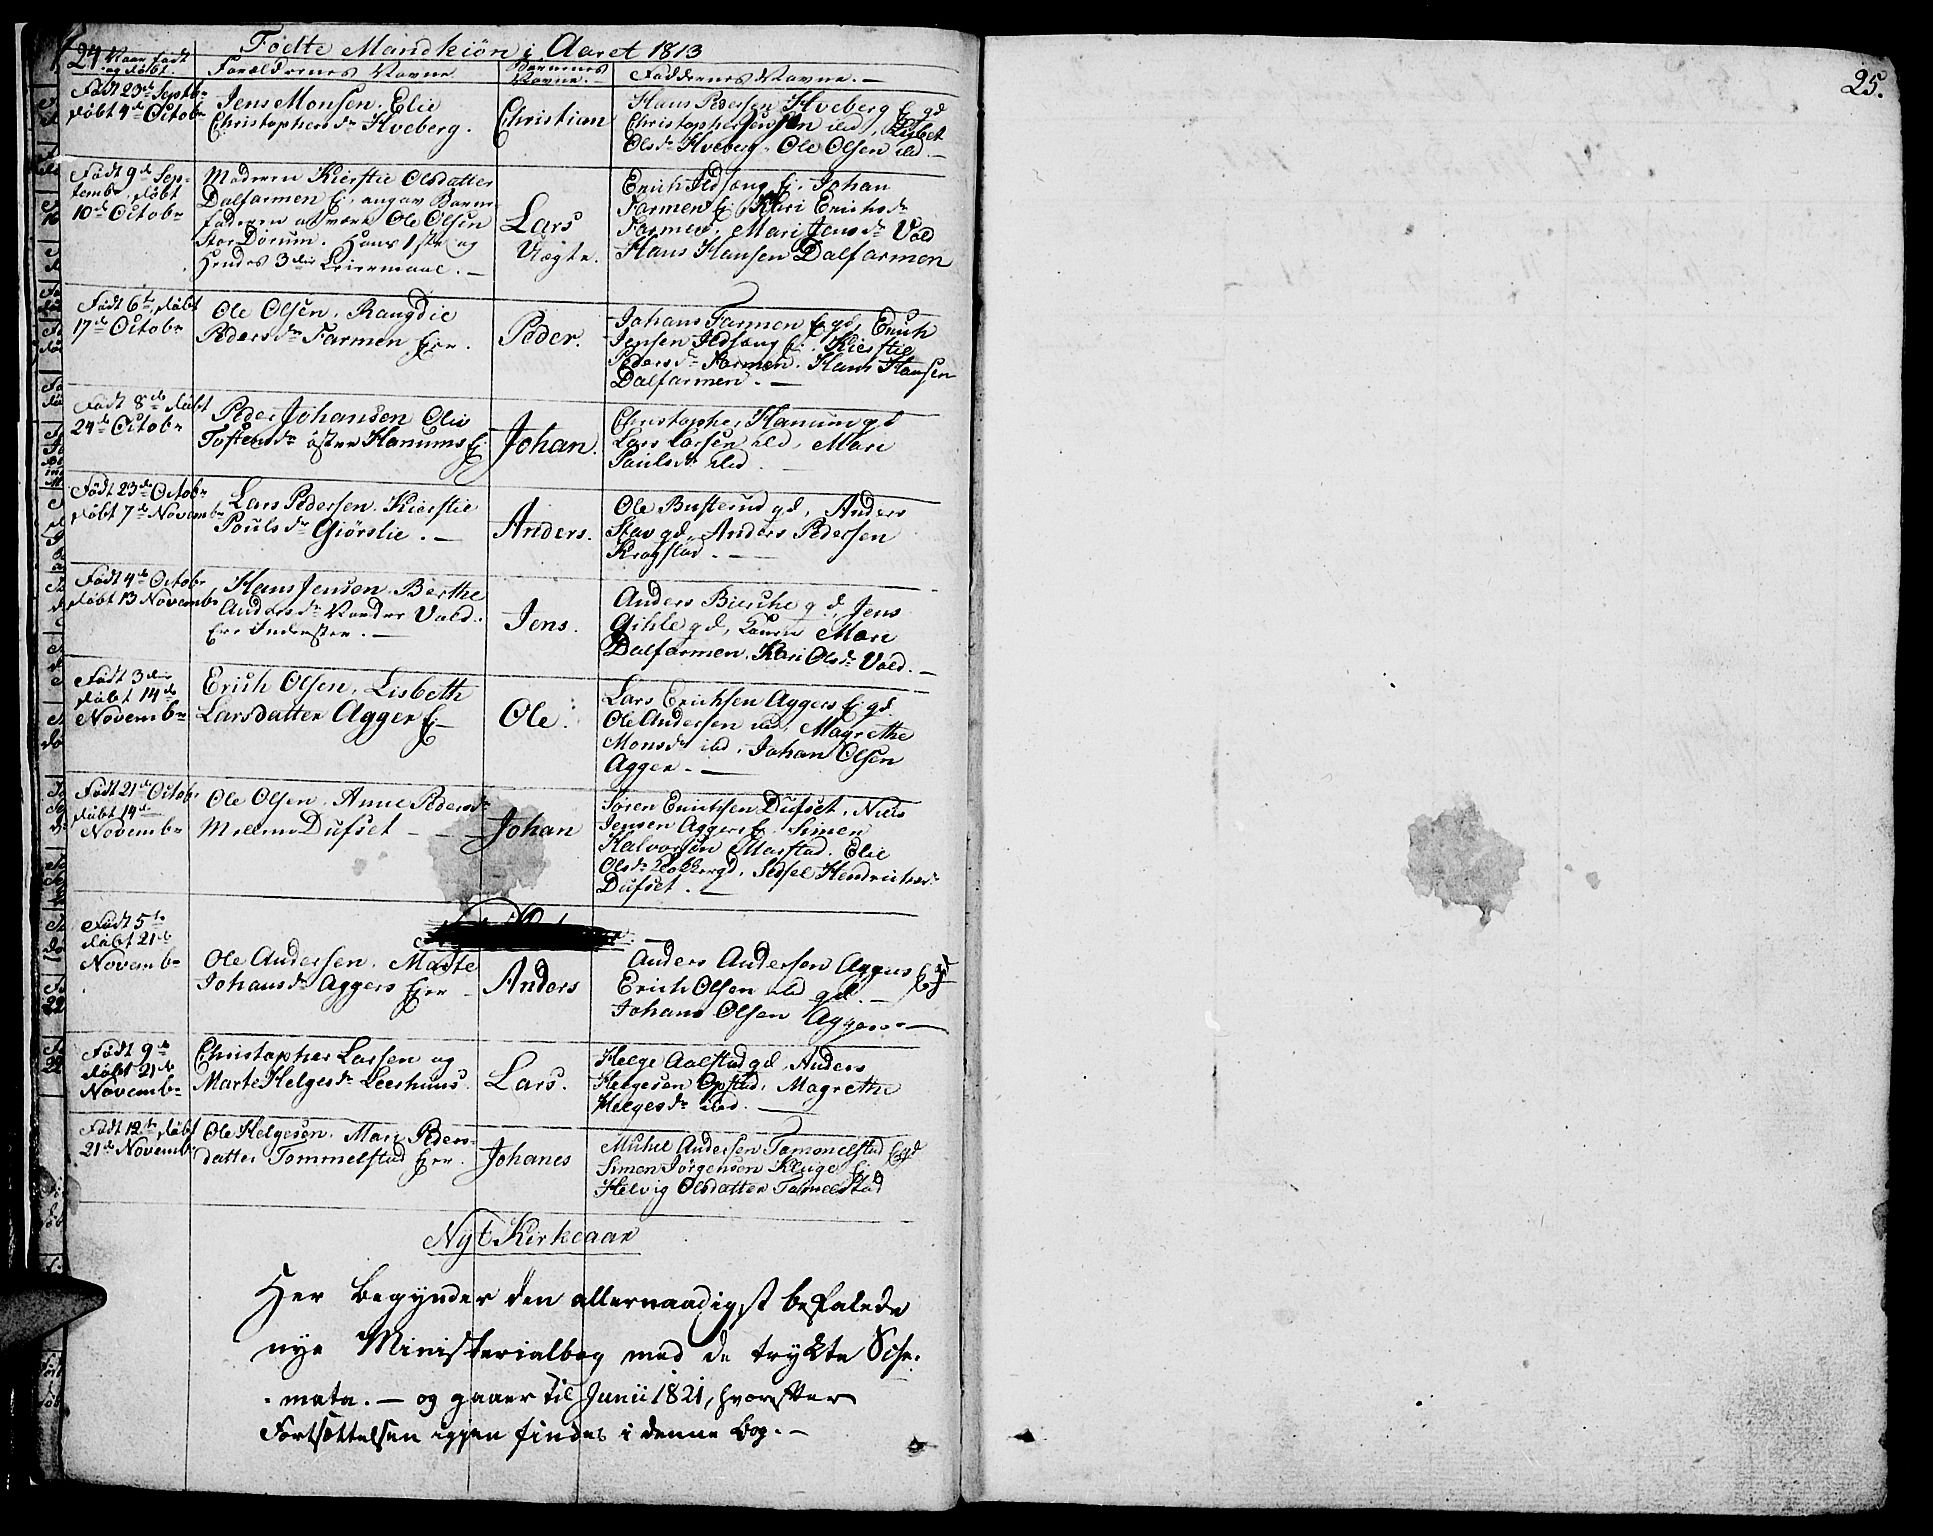 24 Fødte Mandkiön i Aaret 1813
Naar født og døbt. Forældrenes Navne Börnenes Navne. Faddernes Navne. —
Født 23de Septbr
døbt 4de Octobr
Jens Monsen. Elie
Christophersdr Hveberg.
Christian
Hans Pedersen Hveberg Ej. gd
Christophersen ibd, Lisbet
Olsdr Hveberg. Ole Olsen ibd. —
Født 9de Sep-
tembr, døbt
10de Octobr
Moderen Kierstie Olsdatter
Dalfarmen Ej. angav Barne
faderen at være Ole Olsen
Stor Dörum. Hans 1ste og
Hendes 3die Leiermaal. —
Lars
Uægte.
Erich Ildsang Ej. Johan
Farmen Ej. Kari Erichsdr
Farmen. Mari Jensdr Vold
Hans Hansen Dalfarmen
Født 6te, døbt
17de Octobr
Ole Olsen, Rangdie
Pedersdr Farmen Eje.
Peder.
Johans Farmen Ej gd, Erich
Jensen Ildsang Ej. Kierstie
Pedersdr Farmen. Hans Hansen
Dalfarmen. —
Født 8de døbt
24de Octobr
Peder Johansen Elie
Tostensdr östen Hanums Ej
Johan.
Christopher Hanum gd
Lars Larsen ibd, Mari
Paulsdr ibd. —
Født 23de Octobr
døbt 7de Novembr
Lars Pedersen. Kierstie
Poulsdr Giörslie. —
Anders.
Ole Busterud gd, Anders
Stav gd, Anders Pedersen
Kragstad. —
Født 4de Octobr
døbt 13 Novembr
Hans Jensen. Berthe
Andersdr Nordre Vold.
Ere Inderster. —
Jens.
Anders Bierche gd, Jens
Gihle gd, Mari
Dalfarmen. Kari Olsdr Vold. —
Født 3die
døbt 14de
Novembr
Erich Olsen, Lisbeth
Larsdatter Agger Ej —
Ole.
Lars Erichsen Aggers Ej gd.
Ole Andersen ibd, Magrethe
Monsdr ibd, Johan Olsen
Agger. —
Født 21de Octobr
døbt 14de
Novembr
Ole Olsen, Anne Pedersdr
Dufset —
Johan
Sören Erichsen Dufset, Niels
Jensen Aggers Ej. Simen
Halvorsön Marstad. Elie
Olsdr gd, Sidsel Hendrichsdr
Dufset. —
Født 5te
døbt 21de
Novembr
Ole Andersen. Marte
Johansdr Aggers Ejer —
Anders
Anders Andersen Aggers Ej gd
Erich Olsen ibd gd. —
Johans Olsen Aggers. —
Født 9de
døbt 21de
Novembr
Christopher Larsen og
Marte Helgesdr Leerhuus.
Lars.
Helge Aalstad gd, Anders
Helgesen Opstad, Magrethe
Helgesdr ibd. —
Født 12te døbt
21de Novembr
Ole Helgesen. Mari Peders-
datter Tommelstad Eje.
Johanes
Michel Andersen Tommelstad Ej gd
Simen Jörgensen Kluge Ej
Helvig Olsdatter Tomelstad
Nyt Kirkeaar
Her begynder den allernaadigst befalede
nye Ministerialbog med de trykte Sche-
-mata. — og gaaer til Junii 1821, hvorefter
Fortsættelsen igjen findes i denne Bog. —
25.